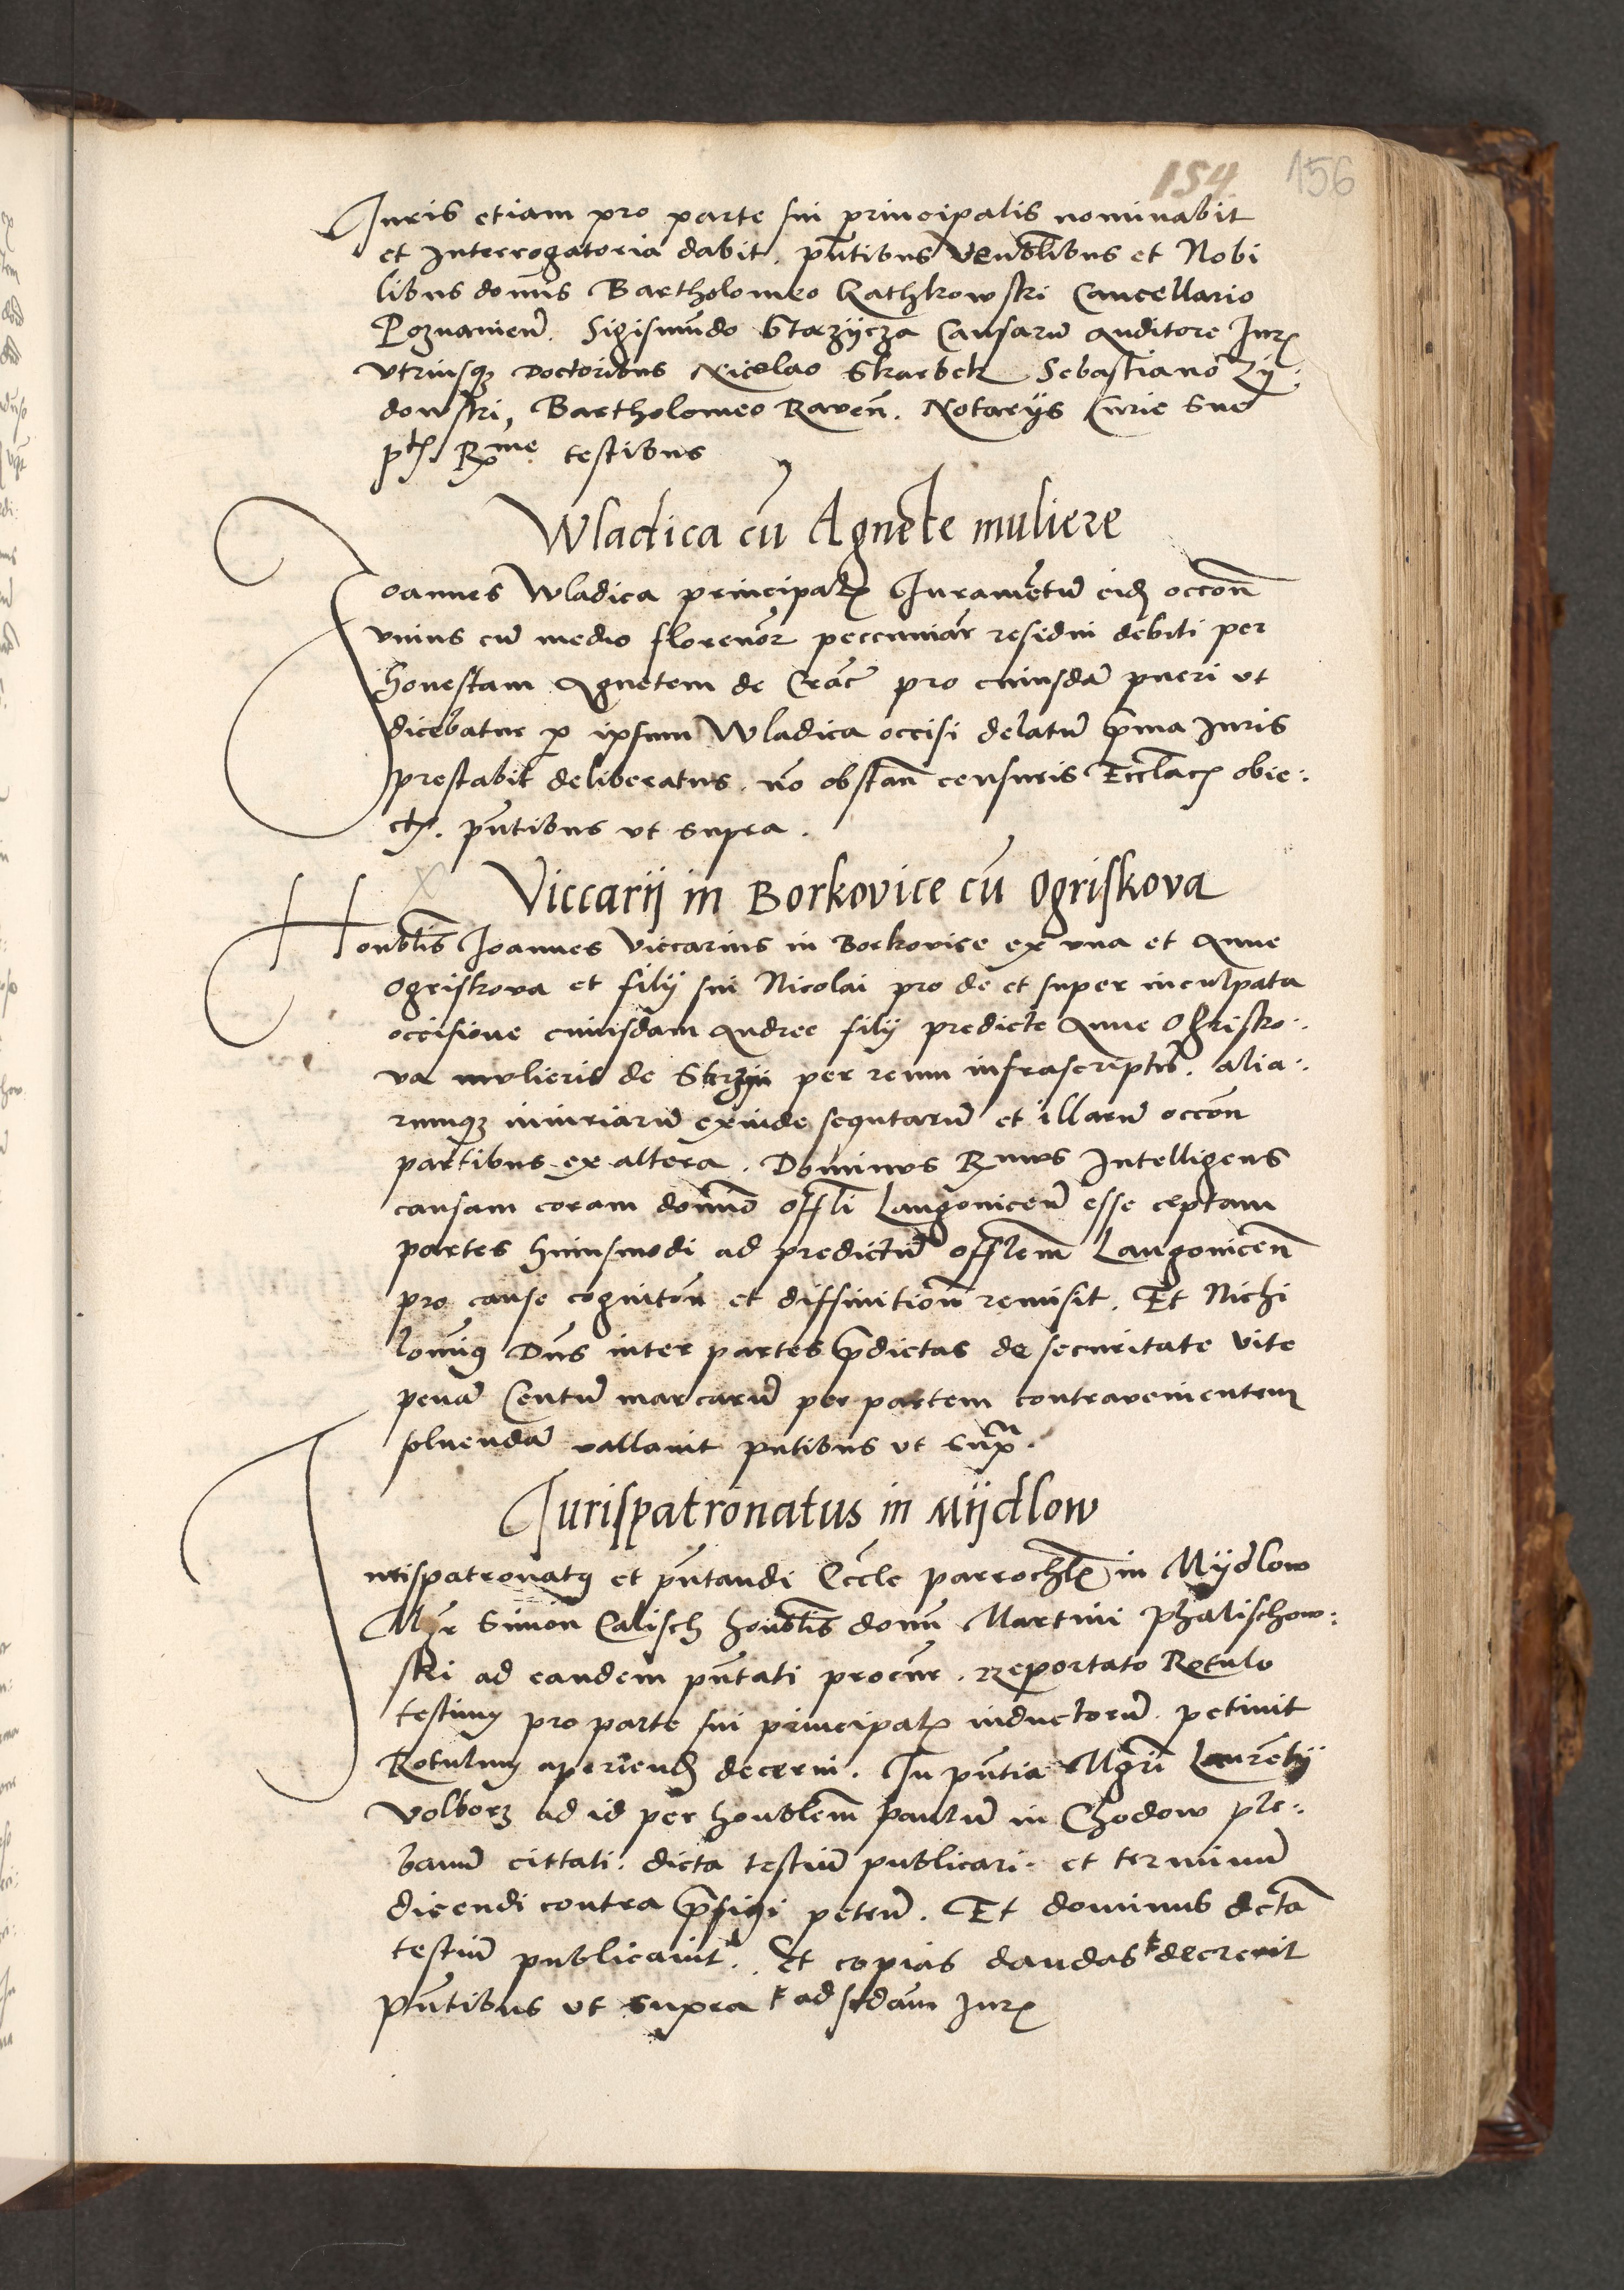 154. 156
Juris etiam pro parte sui principalis nominabit
et Interrogatoria dabit. pn̄tibus Venblibus et Nobi
libus domīs Bartholomeo Rathkowski Cancellario
Poznanien̄. Sigismūdo Starzijcza Causarū Auditore Jur
vtriusq3 Doctoribus Nicolao Skarbek Sebastiano Zij:
dowski, Bartholomeo Raven̄. Notarijs Curie Sue
pt. Rme testibus
Wladica cū Agnete muliere
Joannes Wladica principal Juramētū eid occon̄
vnius cū medio florenor peccuniar residui debiti per
honestam Agnetem de Crac̄ pro cuiusdā pueri vt
dicebatur p ipsum Wladica occisi delatū pma Juris
prestabit deliberatus. nō obstan̄ censuris Eccl̄ac obie:
ct. pn̄tibus vt supra.
Viccarij in Borkovice cū Ogriskova
Honblis Joannes Viccarius in Borkovice ex vna et Anne
Ogriskova et filij sui Nicolai pro de et super inculpata
occisione cuiusdam Andree filij predicte Anne Ogrisko:
va mulieris de per reum infrascriptū. alia:
rumq3 iniuriarū exinde sequtarū et illarū occon̄
partibus ex altera. Dominus Rmus Intelligens
causam coram domīo offli Langonicen̄ esse ceptam
partes huiusmodi ad predictū offlem̄ Langonicen̄
pro cause cognitōn et diffinition̄ remisit. Et Nichi
lomig Dn̄s inter partes pdictas de securitate vite
penā Centū marcarū per partem contravenientem
soluendā vallauit pn̄tibus vt supa.
Jurispatronatus in Mijdlow
Jurispatronatg et pn̄tandi Eccle parrochl in Mijdlow
Mgr Simon Calisch honblis domī Martini Phalischow:
ski ad eandem pn̄tati procur. Reportato Rotulo
testiūm pro parte sui principal inductorū. petiuit
Rotulum aperiend decerni. In pn̄tia Mgri Laurētij
Volborz ad id per honblem̄ paulū in Chodow ple:
banū cittati. dicta testiū publicari. et terminū
dicendi contra pfigi peteñ. Et dominus dicta
testiū publicauit. Et copias dandas decrevit
pn̄tibus vt supra ad sedam Jur